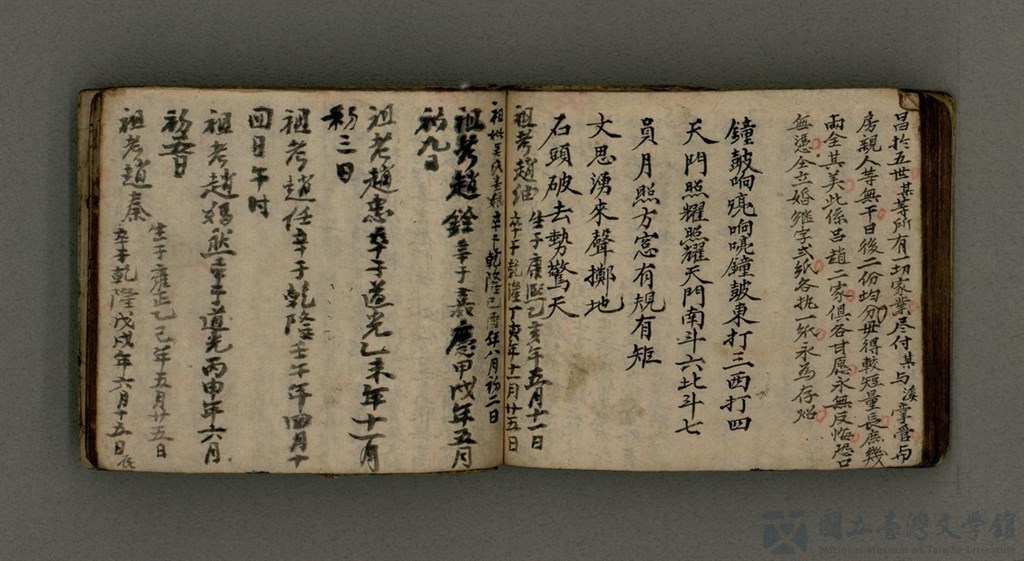 昌於五世其等所有一切家業尽付其与後掌管与
房親人等無干日後二份均分毋得較短量長庶幾
両全其美此係呂趙二家俱各甘愿永無反悔恐口
無憑仝立婚雖字弍紙各执一紙永為存炤
鐘皷响喨响喨鐘皷東打三西打四
天門照耀照耀天門南斗六北斗七
員月照方窓有規有矩
文思湧來聲擲地
石頭破去勢驚天
祖考趙 生于康熙乙亥年五月十一日
卒于乾隆丁亥年十一月廿五日
祖妣吳氏 卒于乾隆己酉年八月初二日
祖考趙銓卒于嘉慶甲戌年五月
初九日
祖考趙忠卒于道光乙未年十一月
初三日
祖考趙任卒于乾隆壬午年四月十
四日午时
祖考趙 卒于道光丙申年六月
初五日
祖考趙秦 生于雍正乙巳年五月廿五日
卒于乾隆戊戌年六月十五日
國立臺灣文學館
National Museum of Taiwan Literature